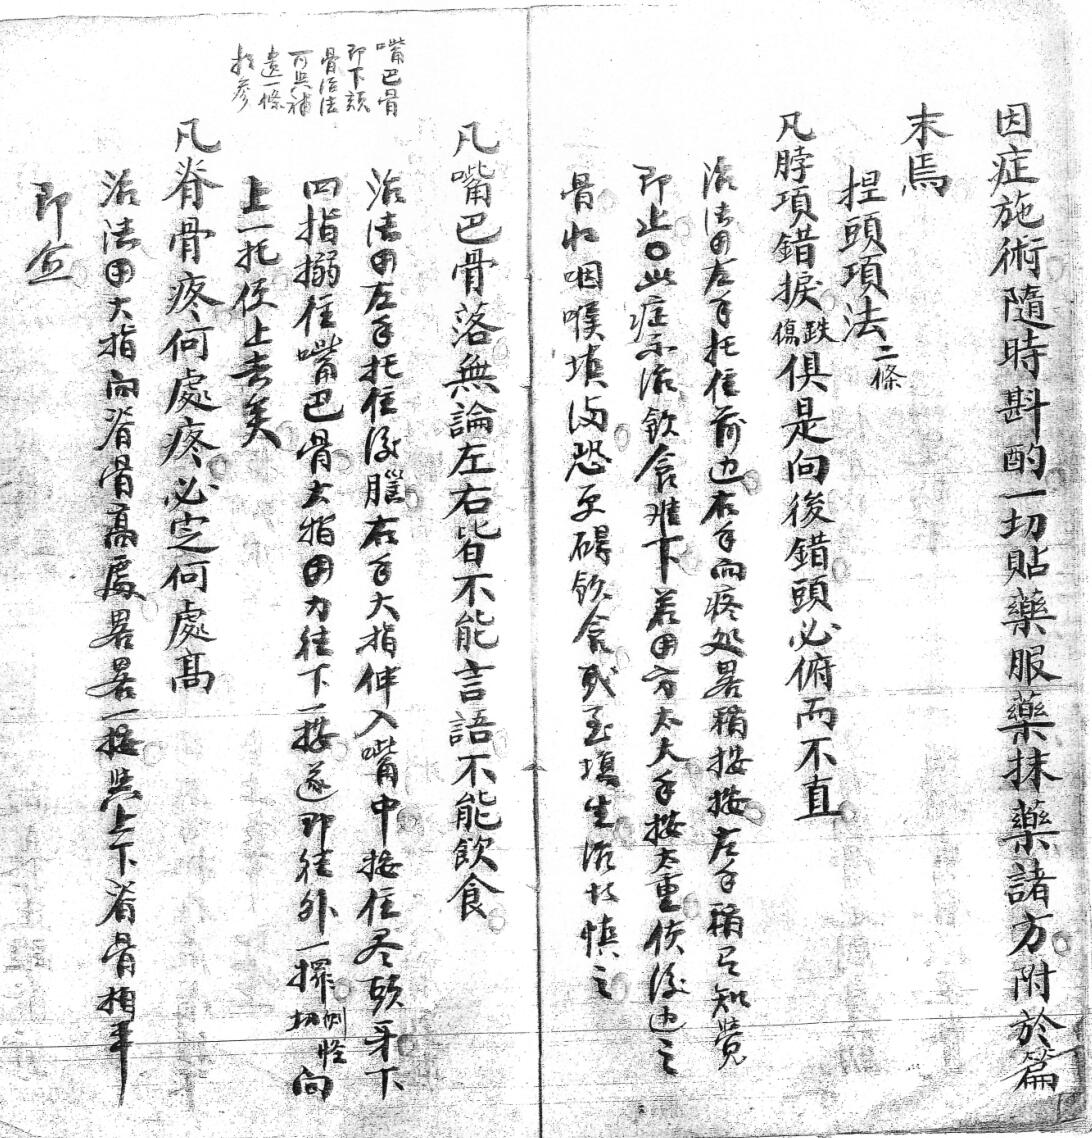 因症施術隨時斟酌一切貼藥服藥抹藥諸方附於篇
末焉
捏頭項法二條
凡脖項錯捩跌傷俱是向後錯頭必俯而不直
治法用左手托住前边右手向疼处畧稍按按左手稍已知覺
即止〇此症不治飲食难下若用方太大手按太重俟後边之
骨收咽喉填滿恐更碍飲食或至塲生治技慎之
嘴巴骨
即下頦
骨治法
可與補
遺一條
相參
凡嘴巴骨落無論左右皆不能言語不能飲食
治法用左手托住後腦右手大指伸入嘴中按住尽頭牙下
四指搦住嘴巴骨大指用力往下一按遂即往外一擰切側怪向
上一托便上去矣
凡脊骨疼何處疼必定何處高
治法用大指向脊骨高處畧畧一按與上下脊骨相平
即愈